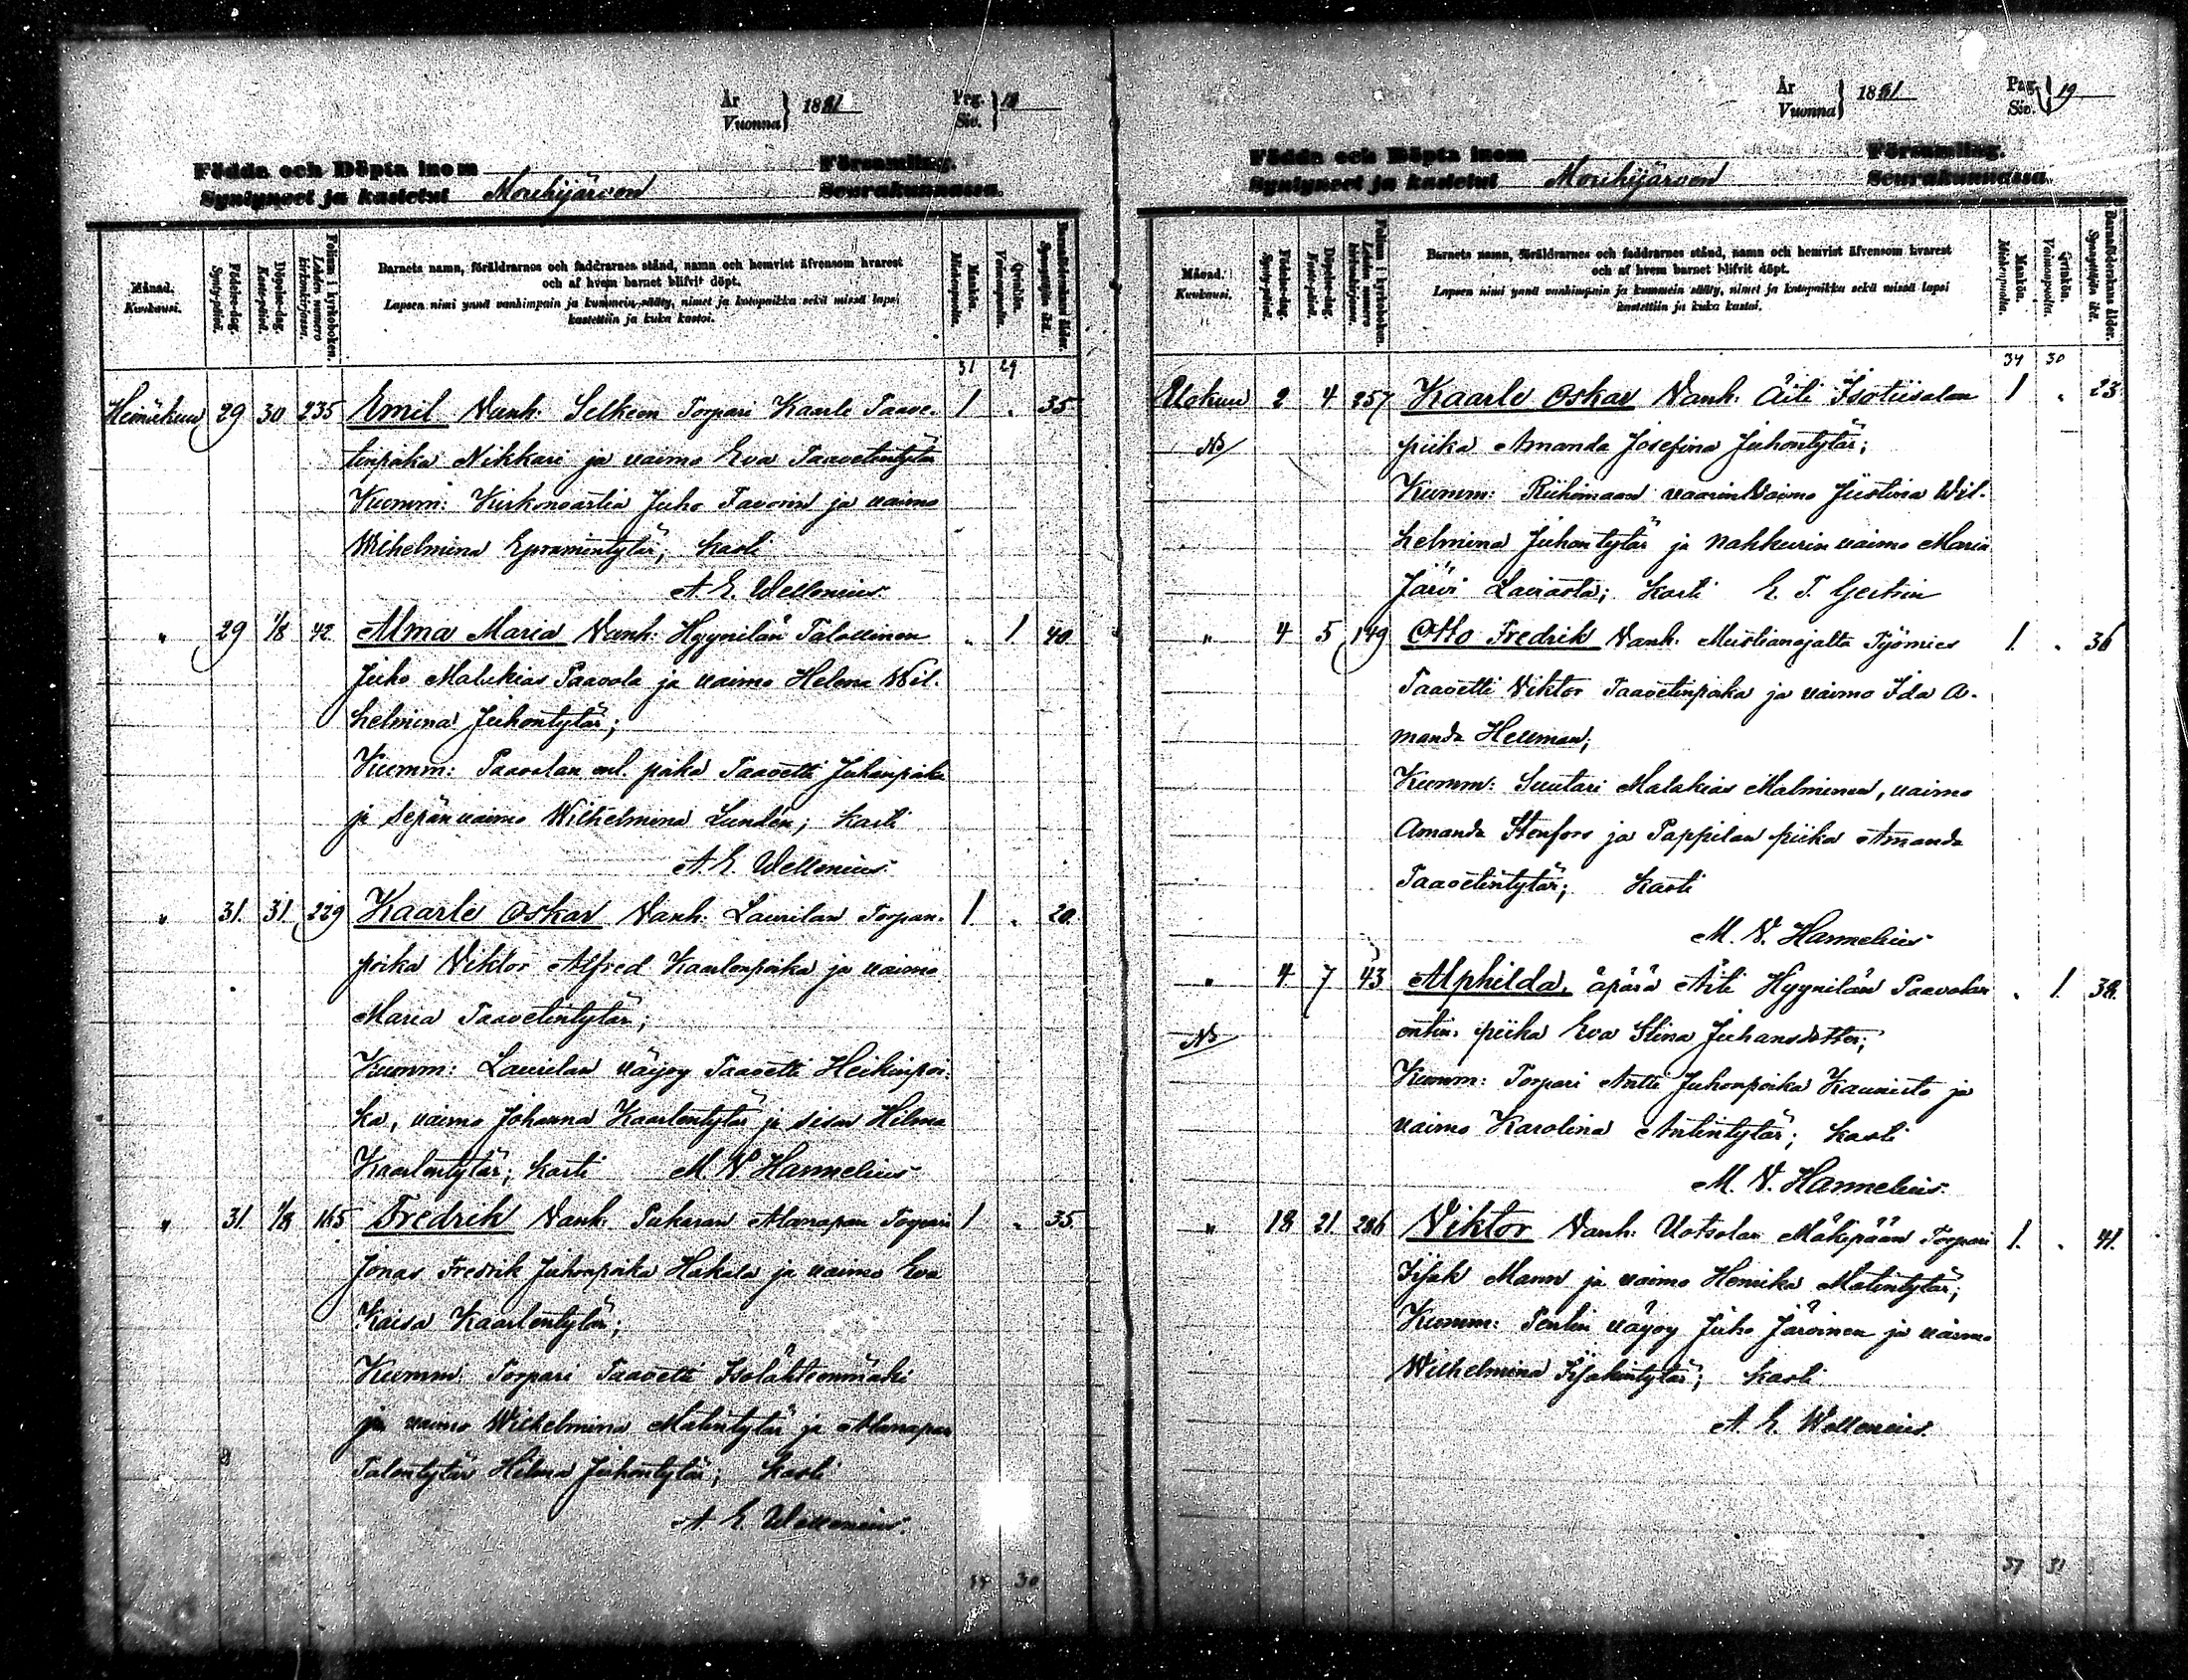 År
Vuonna } 1881
Pag.
Siv. } 18
Födda och Döpta inom Församling.
Syntyneet ja kastetut Mouhijärven Seurakunnassa.
Månad. Kuukausi.
Födelse-dag. Synty-päivä.
Döpelse-dag. Kaste-päivä.
Folium i kyrkoboken. Lehden numero kirkonkirjassa.
Barnets namn, föräldrarnes och faddrarnes stånd, namn och hemvist äfvensom hvarest
och af hvem barnet blifvit döpt.
Lapsen nimi ynnä vanhimpain ja kummein sääty, nimet ja kotopaikka sekä missä lapsi
kastettiin ja kuka kastoi.
Mankön. Miehenpuolta.
Qvinkön. Vaimonpuolta.
Barnaföderskans ålder. Synnyttäjän ikä.
31 29
Heinäkuu 29 30 235 Emil Vanh: Selkeen Torpari Kaarle Taave- 1 " 35
tinpoika Nikkari ja vaimo Eva Taavetintytär
Kumm: Kirkonvartia Juho Tavonn ja vaimo
Wilhelmina Epramintytär; kasti
A. E. Wellenius.
" 29 1/8 42 Alma Maria Vanh: Hyynilän Talollinen " 1 40.
Juho Malakias Paavola ja vaimo Helena Wil-
helmina Juhontytär;
Kumm: Paavolan poika Taavetti Juhanpoika
ja Sepän vaimo Wilhelmina Lundén; kasti
A. E. Wellenius.
" 31. 31. 229 Kaarle Oskar Vanh: Laurilan Torpan- 1. " 20.
poika Viktor Alfred Kaarlonpoika ja vaimo
Maria Taavetintytär;
Kumm: Laurilan vävy Taavetti Heikinpoi-
ka, vaimo Johanna Kaarlentytär ja sisar Hilma
Kaarlentytär; kasti M. V. Hannelius
" 31. 1/8 165 Fredrik Vanh: Pukaran Alanapan Torpari 1 " 35.
Jonas Fredrik Juhonpoika Hakala ja vaimo Eva
Kaisa Kaarlentytär;
Kumm: Torpari Taavetti Isolähteenmäki
ja vaimo Wilhelmina Matintytär ja Alanapan
Talontytär Hilma Juhontytär; kasti
A. E. Wellenius.
34 30
År
Vuonna } 1881
Pag.
Siv. } 19
Födda och Döpta inom Församling.
Syntyneet ja kastetut Mouhijärven Seurakunnassa.
Månad. Kuukausi.
Födelse-dag. Synty-päivä.
Döpelse-dag. Kaste-päivä.
Folium i kyrkoboken. Lehden numero kirkonkirjassa.
Barnets namn, föräldrarnes och faddrarnes stånd, namn och hemvist äfvensom hvarest
och af hvem barnet blifvit döpt.
Lapsen nimi ynnä vanhimpain ja kummein sääty, nimet ja kotopaikka sekä missä lapsi
kastettiin ja kuka kastoi.
Mankön. Miehenpuolta.
Qvinkön. Vaimonpuolta.
Barnaföderskans ålder. Synnyttäjän ikä.
34 30
Elokuu 2 4 257 Kaarle Oskar Vanh: Äiti Isotiisalan 1 " 23
Nb piika Amanda Josefina Juhontytär;
Kumm: Riihimaan vaarin vaimo Justina Wil-
helmina Juhontytär ja Nahkurin vaimo Maria
Järvi Lauriasta; kasti E. T. Gestrin
" 4 5 149 Otto Fredrik Vanh: Mustianojalta Työmies 1. " 36
Taavetti Viktor Taavetinpoika ja vaimo Ida A-
manda Hellman;
Kumm: Suutari Malakias Malminen, vaimo
Amanda Stenfors ja Pappilan piika Amanda
Taavetintytär; kasti
M. V. Hannelius
" 4 7 43 Alphilda, äpärä Äiti Hyynilän Paavolan " 1. 38.
Nb entin. piika Eva Stina Juhansdotter;
Kumm: Torpari Antti Juhonpoika Kaunisto ja
vaimo Karolina Antintytär; kasti
M. V. Hannelius.
" 18 21. 286 Viktor Vanh: Uotsolan Mäkipään Torpari 1. " 41.
Isak Mann ja vaimo Henrika Matintytär;
Kumm: Pentin vävy Juho Järvinen ja vaimo
Wilhelmina Isakintytär; kasti
A. E. Wellenius.
37 31